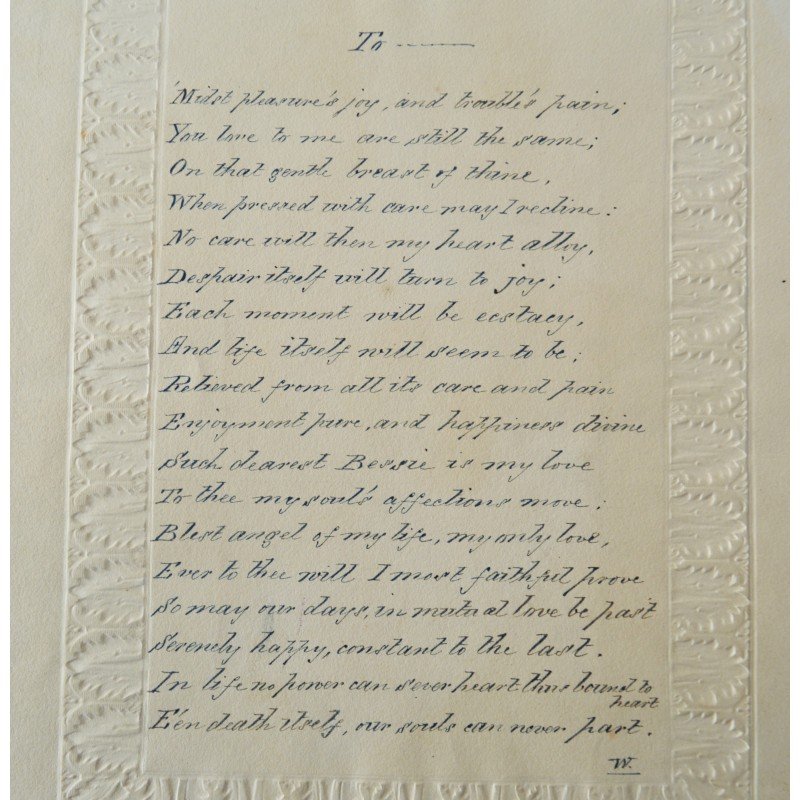 To ———
'Midst pleasure's joy, and trouble's pain;
You love to me are still the same;
On that gentle breast of thine,
When pressed with care may I recline:
No care will then my heart alloy,
Despair itself will turn to joy;
Each moment will be ecstacy,
And life itself will seem to be;
Relieved from all its care and pain
Enjoyment pure, and happiness divine
Such dearest Bessie is my love
To thee my soul's affections move;
Blest angel of my life, my only love,
Ever to thee will I most faithful prove
So may our days, in mutual love be past
Serenely happy, constant to the last.
In life no power can sever heart thus bound to
heart
E'en death itself, our souls can never part.
W.